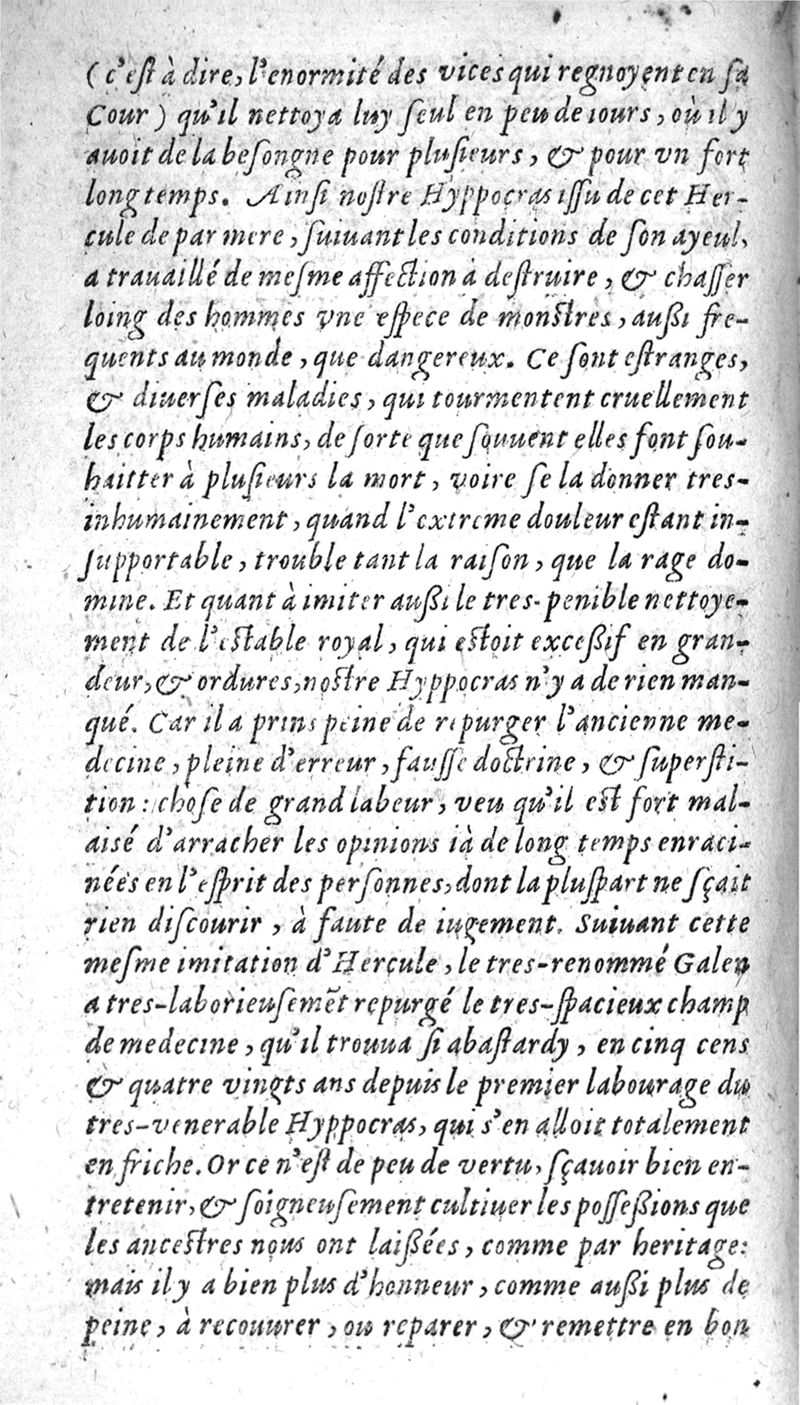 (c'eſt à dire, l'enormité des vices qui regnoyent en ſa
Cour) qu'il nettoya luy ſeul en peu de iours, où il y
auoit de la beſongne pour pluſieurs, & pour vn fort
long temps. Ainſi noſtre Hyppocras iſſu de cet Her-
cule de par mere, ſuiuant les conditions de ſon ayeul,
a trauaillé de meſme affection à deſtruire, & chaſſer
loing des hommes vne eſpece de monſtres, außi fre-
quents au monde, que dangereux. Ce ſont eſtranges,
& diuerſes maladies, qui tourmentent cruellement
les corps humains, de ſorte que ſouuent elles font ſou-
haitter à pluſieurs la mort, voire ſe la donner tres-
inhumainement, quand l'extreme douleur eſtant in-
ſupportable, trouble tant la raiſon, que la rage do-
mine. Et quant à imiter außi le tres-penible nettoye-
ment de l'eſtable royal, qui eſtoit exceßif en gran-
deur, & ordures, noſtre Hyppocras n'y a de rien man-
qué. Car il a prins peine de repurger l'ancienne me-
decine, pleine d'erreur, fauſſe doctrine, & ſuperſti-
tion: choſe de grand labeur, veu qu'il eſt fort mal-
aisé d'arracher les opinions ià de long temps enraci-
nées en l'eſprit des perſonnes, dont la pluſpart ne ſçait
rien diſcourir, à faute de iugement. Suiuant cette
meſme imitation d'Hercule, le tres-renommé Galen
a tres-laborieuſemẽt repurgé le tres-ſpacieux champ
de medecine, qu'il trouua ſi abaſtardy, en cinq cens
& quatre vingts ans depuis le premier labourage du
tres-venerable Hyppocras, qui s'en alloit totalement
en friche. Or ce n'eſt de peu de vertu, ſçauoir bien en-
tretenir, & ſoigneuſement cultiuer les poſſeßions que
les anceſtres nous ont laißées, comme par heritage:
mais il y a bien plus d'honneur, comme außi plus de
peine, à recouurer, ou reparer, & remettre en bon